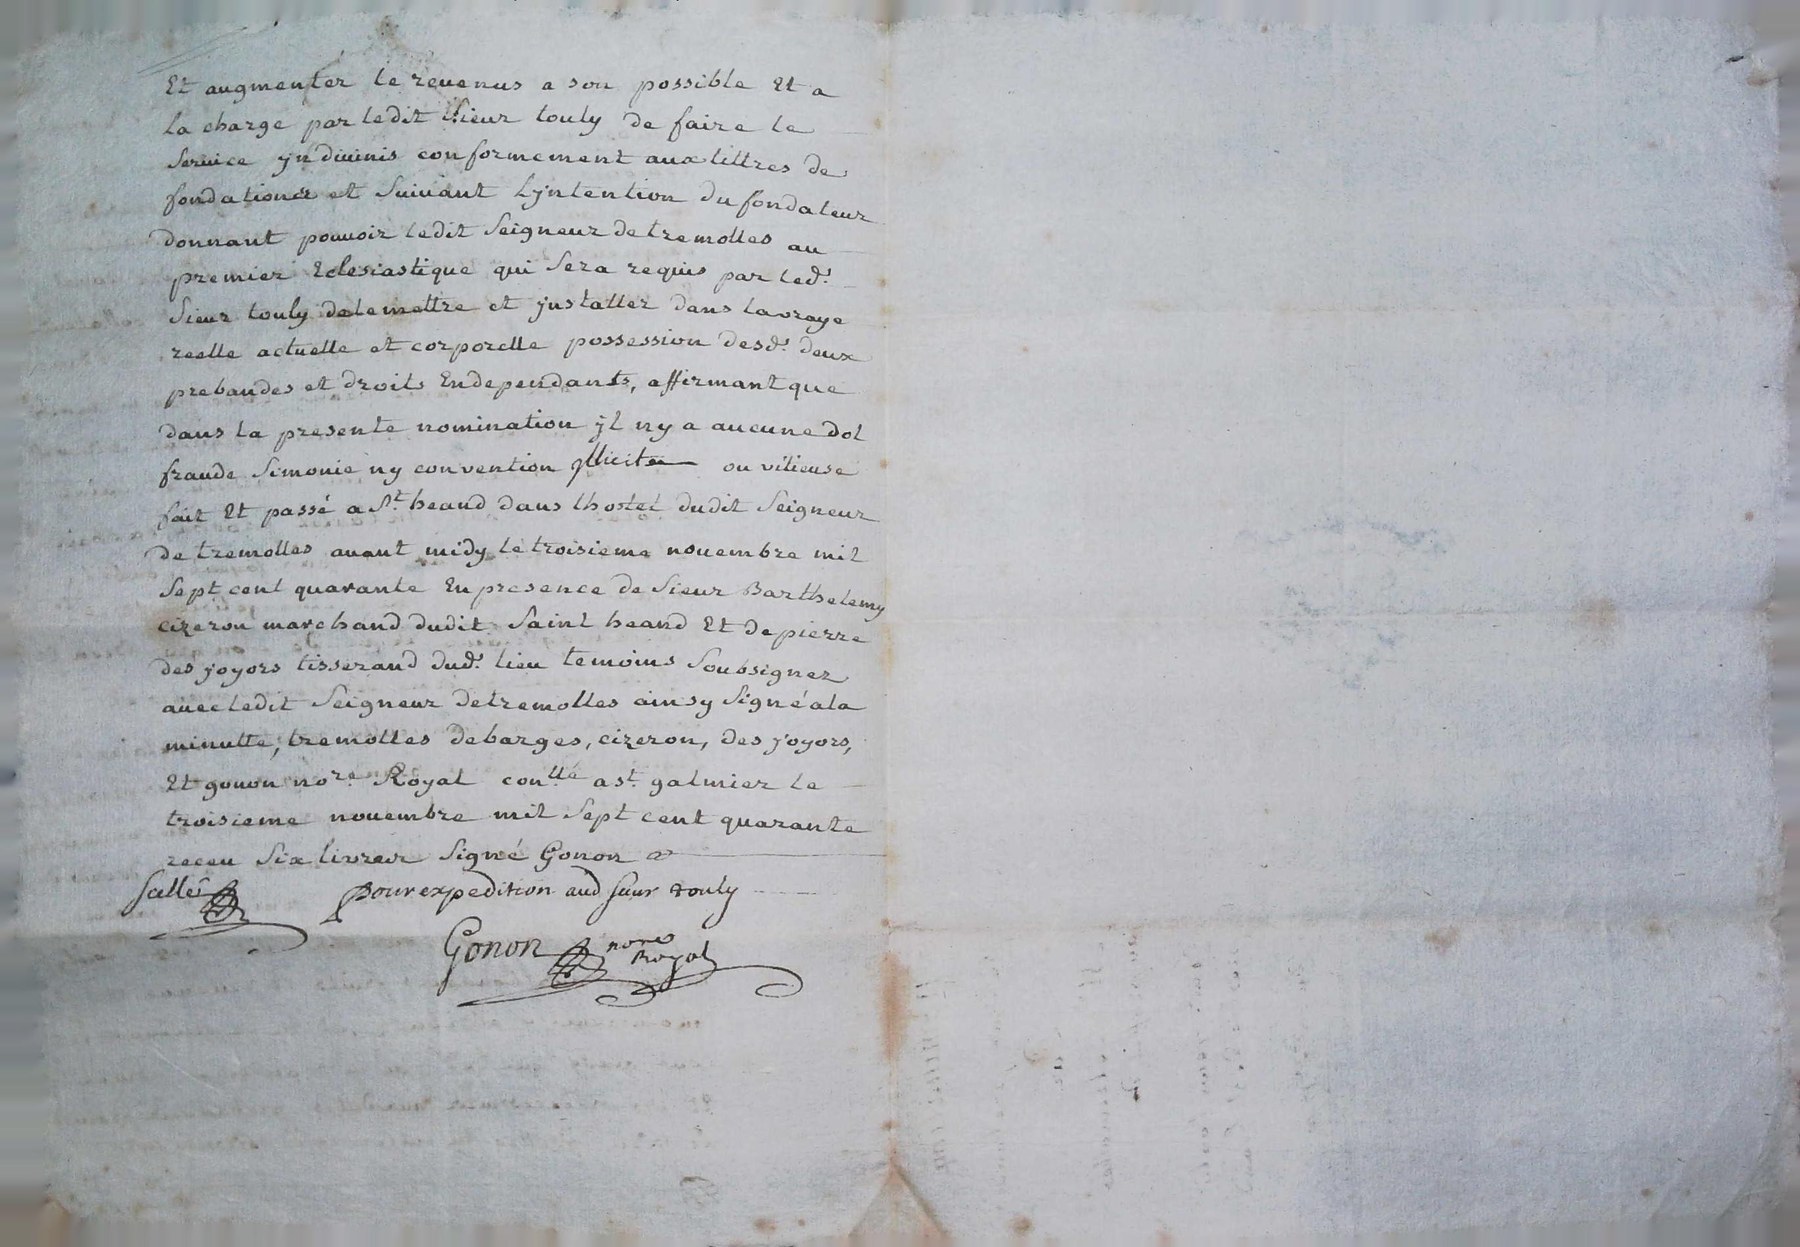 Et augmenter le revenus a son possible Et a
la charge par ledit Sieur touly de faire le
Service yn divinis conformement aux tittres de
fondationes et Suivant Lyntention du fondateur
donnant pouvoir ledit Seigneur detremolles au
premier Eclesiastique qui Sera requis par led.t
Sieur touly delemettre et ynstaller dans lavraye
reelle actuelle et corporelle possession desd.t deux
prebandes et droits Endependants, affirmant que
dans la presente nomination yl ny a aucune dol
fraude Simonie ny convention yllicite ou vitieuse
fait Et passé a S.t heand dans lhostel dudit Seigneur
de tremolles avant midy le troisieme novembre mil
Sept cent quarante En presence de Sieur Barthelemy
cizeron marchand dudit Saint heand Et de pierre
des joyors tisserand dud.t lieu temoins Soubsignez
avec ledit Seigneur detremolles ainsy Signé ala
minutte, tremolles debarges, cizeron, des joyors,
Et gonon no.re Royal con.llé a st. galmier le
troisieme novembre mil Sept cent quarante
receu Six livres Signé Gonon
Sellé
pour expedition aud Sieur touly
Gonon no.re
Royal